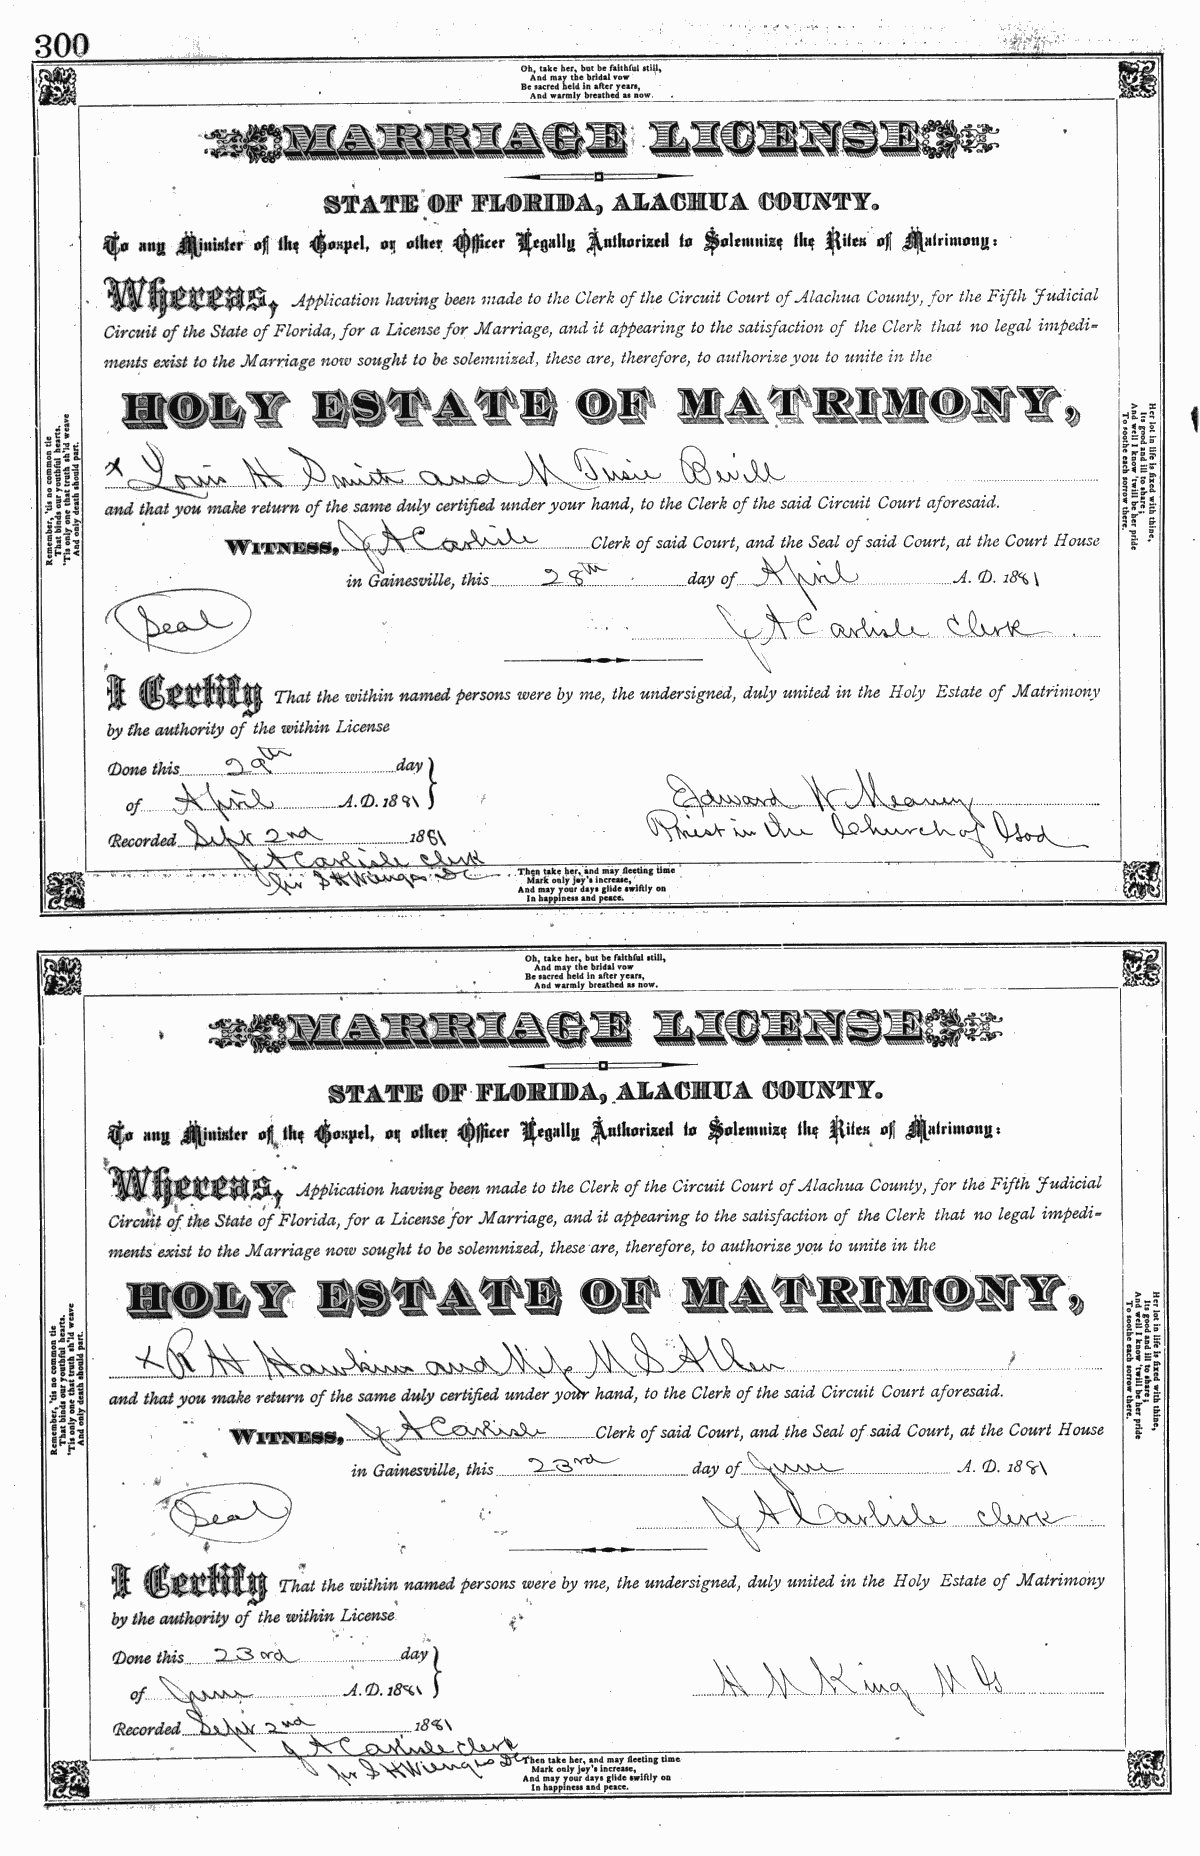 300
Oh, take her, but be faithful still,
And may the bridal vow
Be sacred held in after years,
And warmly breathed as now.
MARRIAGE LICENSE
STATE OF FLORIDA, ALACHUA COUNTY.
To any Minister of the Gospel, or other Officer Legally Authorized to Solemnize the Rites of Matrimony:
Whereas, Application having been made to the Clerk of the Circuit Court of Alachua County, for the Fifth Judicial
Circuit of the State of Florida, for a License for Marriage, and it appearing to the satisfaction of the Clerk that no legal impedi-
ments exist to the Marriage now sought to be solemnized, these are, therefore, to authorize you to unite in the
HOLY ESTATE OF MATRIMONY,
x Louis H Smith and M Tusie Bevill
and that you make return of the same duly certified under your hand, to the Clerk of the said Circuit Court aforesaid.
WITNESS, J A Carlisle Clerk of said Court, and the Seal of said Court, at the Court House
in Gainesville, this 28th day of April A. D. 1881
Seal
J A Carlisle Clerk
I Certify That the within named persons were by me, the undersigned, duly united in the Holy Estate of Matrimony
by the authority of the within License
Done this 29th day
of April A. D. 1881
Edward W Meaney
Priest in the Church of God
Recorded Sept 2nd 1881
J A Carlisle Clerk
for S H Wienges DC
Then take her, and may fleeting time
Mark only joy's increase,
And may your days glide swiftly on
In happiness and peace.
Remember, 'tis no common tie
That binds our youthful hearts.
'Tis only one that truth sh'ld weave
And only death should part.
Her lot in life is fixed with thine,
Its good and ill to share;
And well I know 'twill be her pride
To soothe each sorrow there.
Oh, take her, but be faithful still,
And may the bridal vow
Be sacred held in after years,
And warmly breathed as now.
MARRIAGE LICENSE
STATE OF FLORIDA, ALACHUA COUNTY.
To any Minister of the Gospel, or other Officer Legally Authorized to Solemnize the Rites of Matrimony:
Whereas, Application having been made to the Clerk of the Circuit Court of Alachua County, for the Fifth Judicial
Circuit of the State of Florida, for a License for Marriage, and it appearing to the satisfaction of the Clerk that no legal impedi-
ments exist to the Marriage now sought to be solemnized, these are, therefore, to authorize you to unite in the
HOLY ESTATE OF MATRIMONY,
x R H Hawkins and M S Allen
and that you make return of the same duly certified under your hand, to the Clerk of the said Circuit Court aforesaid.
WITNESS, J A Carlisle Clerk of said Court, and the Seal of said Court, at the Court House
in Gainesville, this 23rd day of June A. D. 1881
Seal
J A Carlisle Clerk
I Certify That the within named persons were by me, the undersigned, duly united in the Holy Estate of Matrimony
by the authority of the within License
Done this 23rd day
of June A. D. 1881
H M King M G
Recorded Sept 2nd 1881
J A Carlisle Clerk
for S H Wienges DC
Then take her, and may fleeting time
Mark only joy's increase,
And may your days glide swiftly on
In happiness and peace.
Remember, 'tis no common tie
That binds our youthful hearts.
'Tis only one that truth sh'ld weave
And only death should part.
Her lot in life is fixed with thine,
Its good and ill to share;
And well I know 'twill be her pride
To soothe each sorrow there.